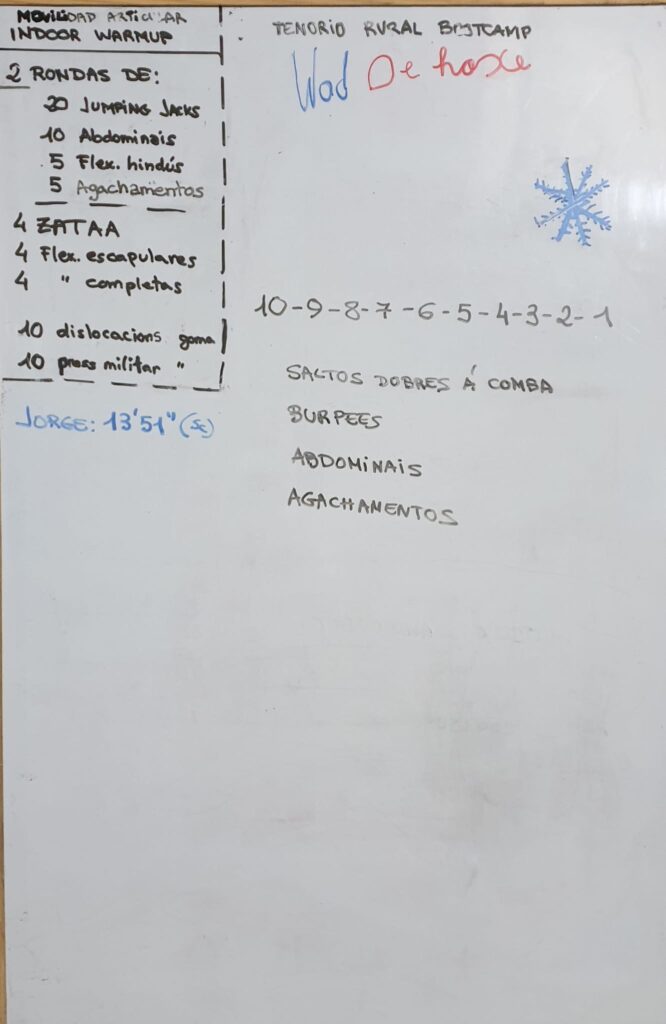 MOVILIDAD ARTICULAR
INDOOR WARMUP
2 RONDAS DE:
20 JUMPING JACKS
10 Abdominais
5 Flex. hindús
5 Agachamentos
4 ZATAA
4 Flex. escapulares
4 " completas
10 dislocacions goma
10 press militar "
JORGE: 13'51" (SC)
TENORIO RURAL BOOTCAMP
Wod De hoxe
10-9-8-7-6-5-4-3-2-1
SALTOS DOBRES Á COMBA
BURPEES
ABDOMINAIS
AGACHAMENTOS